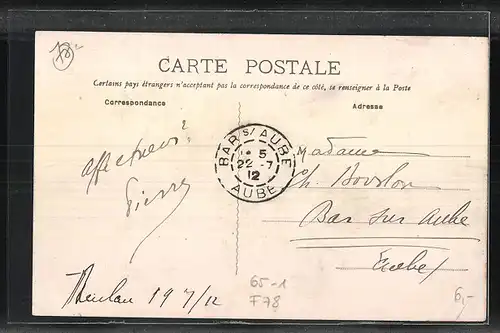 78-
CARTE POSTALE
Certains pays étrangers n'acceptant pas la correspondance de ce côté, se renseigner à la Poste
Correspondance
Adresse
Pierre
BAR s/ AUBE
* 5
22 -7
12
AUBE
Madame
Ch.
Bar sur Aube
Aube
19 7/12
65-1
F78
6,-